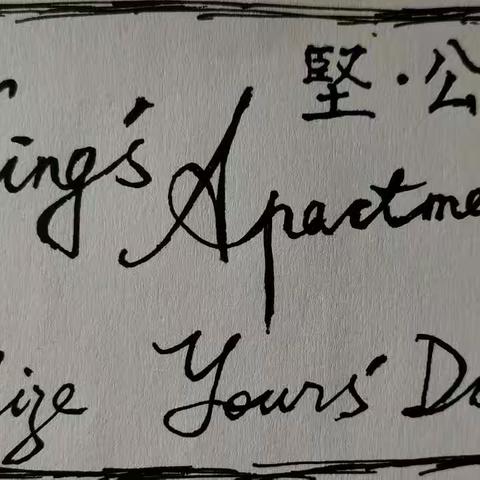 堅·公
ing's Apartme
ize Yours' D